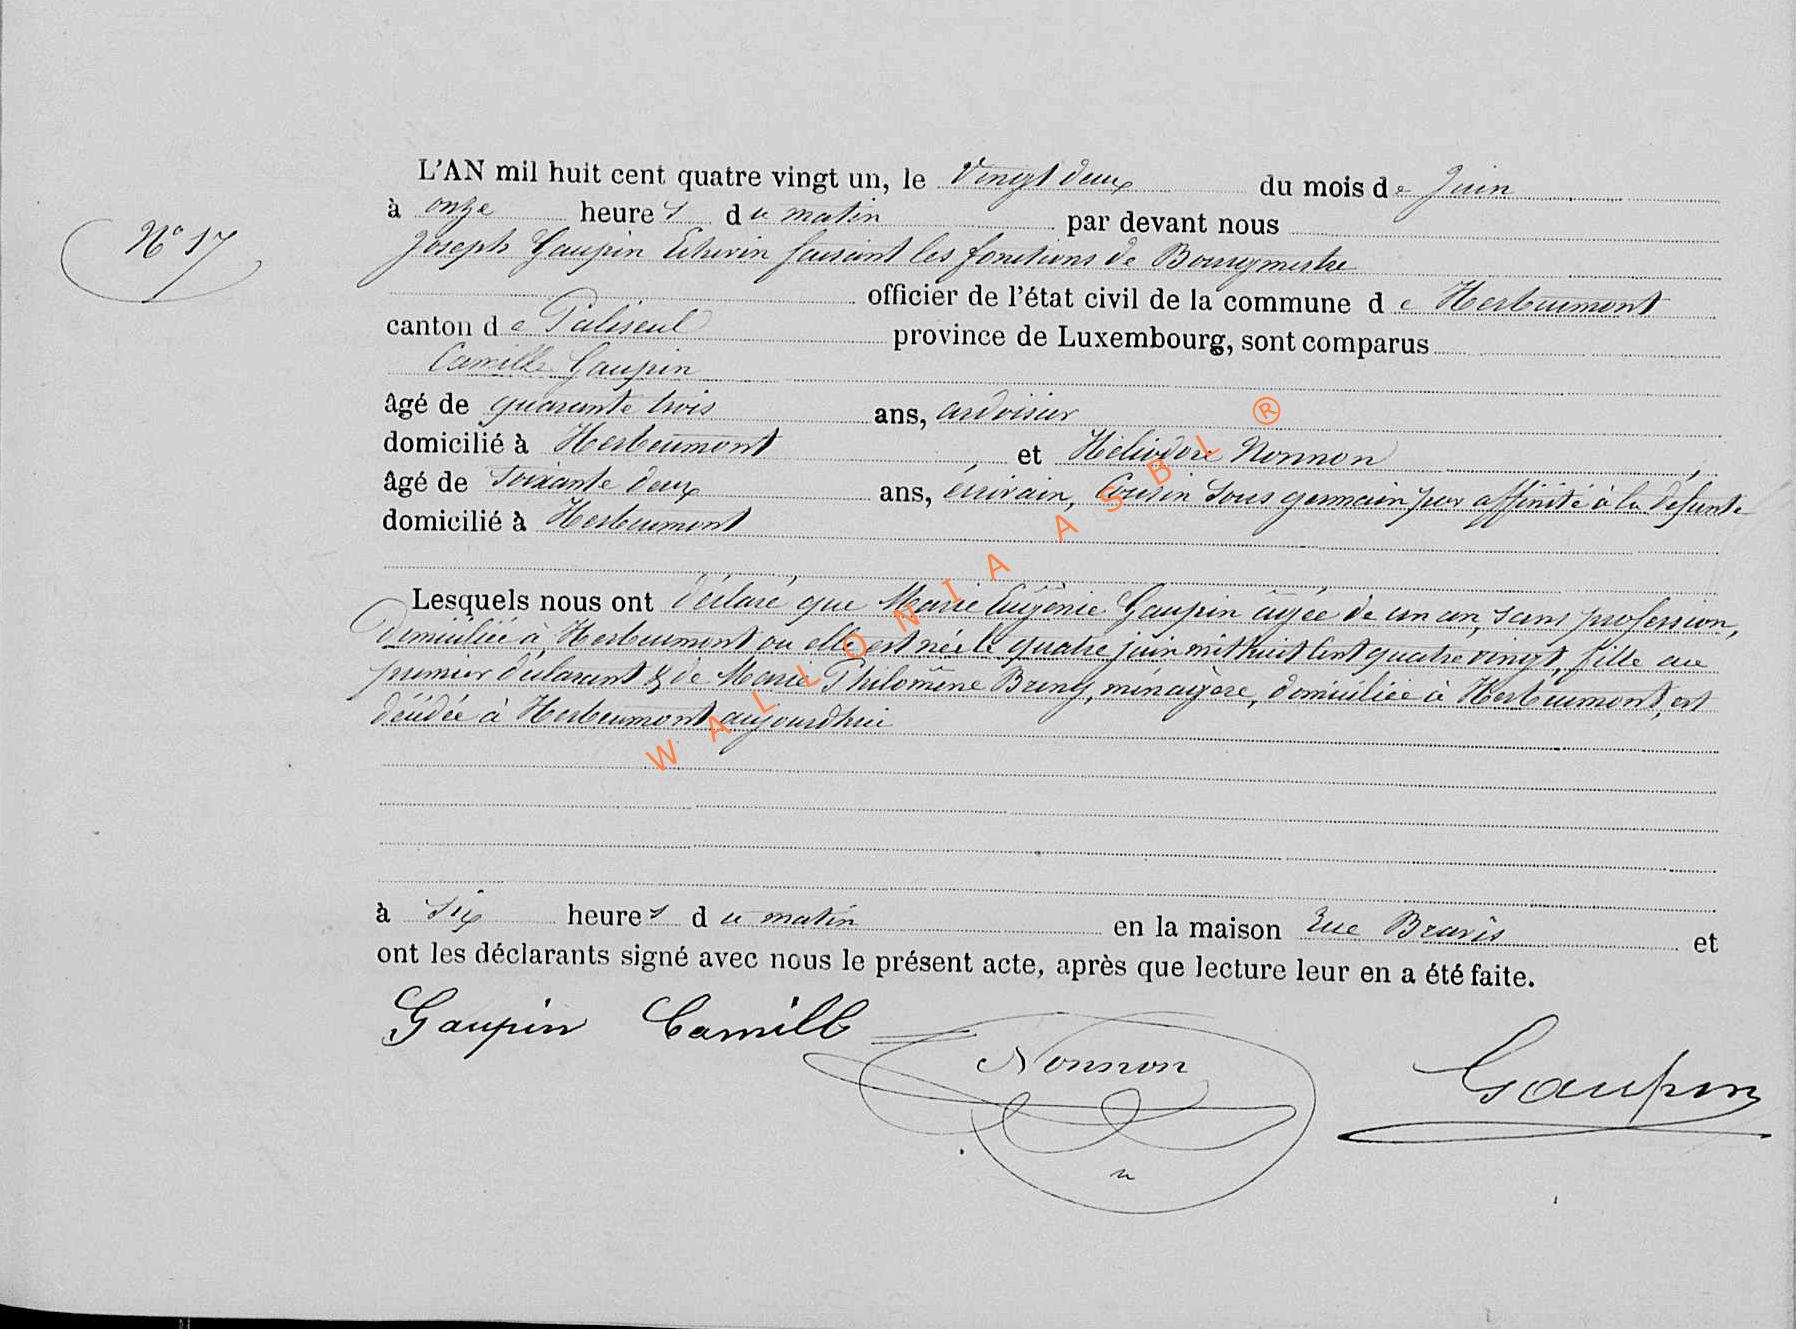 L'AN mil huit cent quatre vingt un, le Vingt deux du mois de Juin
N° 17
à onze heures du matin par devant nous
Joseph Gaupin Echevin faisant les fonctions de Bourgmestre
officier de l'état civil de la commune de Herbeumont
canton de Paliseul province de Luxembourg, sont comparus
Camille Gaupin
âgé de quarante trois ans, ardoisier
domicilié à Herbeumont et Héliodore Nonnon
âgé de soixante deux ans, écrivain, Cousin sous germain par affinité à la défunte
domicilié à Herbeumont
Lesquels nous ont déclaré que Marie Eugénie Gaupin âgée de un an, sans profession,
domiciliée à Herbeumont ou elle est née le quatre juin mil huit cent quatre vingt, fille au
premier déclarant & de Marie Philomène Bring, ménagère, domiciliée à Herbeumont, est
décédée à Herbeumont aujourdhui
à six heures du matin en la maison rue Bravis et
ont les déclarants signé avec nous le présent acte, après que lecture leur en a été faite.
Gaupin Camille
Nonnon
Gaupin
WALLONIA ASBL ®